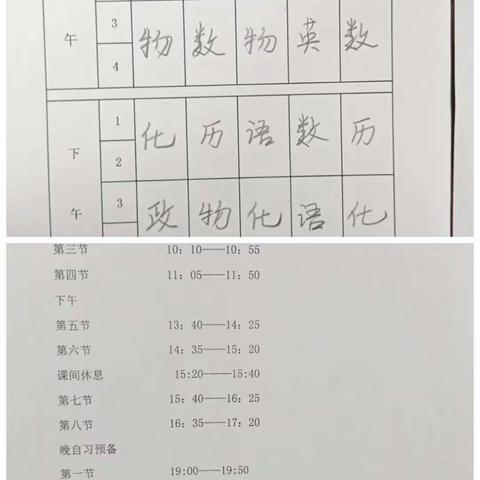 午 3 物 数 物 英 数
4
下 1 化 历 语 数 历
2
午 3 政 物 化 语 化
第三节 10：10——10：55
第四节 11：05——11：50
下午
第五节 13：40——14：25
第六节 14：35——15：20
课间休息 15:20——15:40
第七节 15：40——16：25
第八节 16：35——17：20
晚自习预备
第一节 19:00——19:50